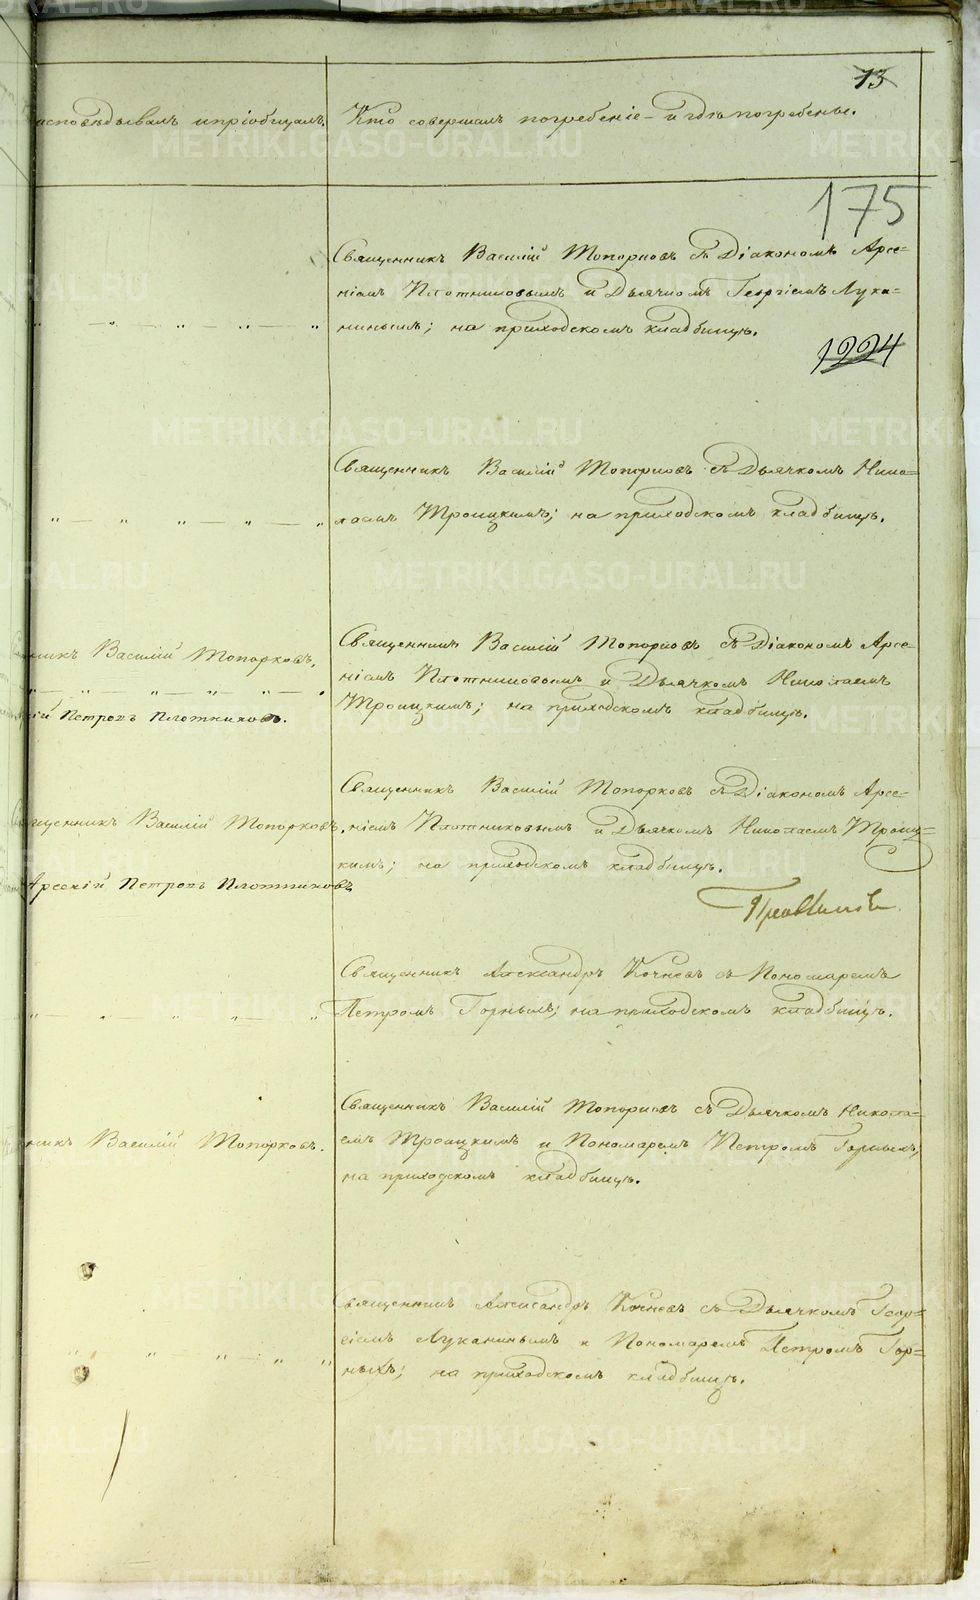 13
исповѣдывалъ и пріобщалъ. Кто совершалъ погребеніе и гдѣ погребены.
175
Священникъ Василій Топорковъ съ Діакономъ Арсе=
ніемъ Плотниковымъ и Дьячкомъ Георгіемъ Лука=
" — " — " — " — " нинымъ; на приходскомъ кладбищѣ.
1224
Священникъ Василій Топорковъ съ Дьячкомъ Нико=
" — " " — " — " лаемъ Троицкимъ; на приходскомъ кладбищѣ.
Священникъ Василій Топорковъ съ Діакономъ Арсе=
никъ Василій Топорковъ,
ніемъ Плотниковымъ и Дьячкомъ Николаемъ
" — " — " " — "
Троицкимъ; на приходскомъ кладбищѣ.
ній Петровъ Плотниковъ.
Священникъ Василій Топорковъ съ Діакономъ Арсе=
щенникъ Василій Топорковъ, ніемъ Плотниковымъ и Дьячкомъ Николаемъ Троиц=
кимъ; на приходскомъ кладбищѣ.
Арсеній Петровъ Плотниковъ
Священникъ Александръ Кочневъ съ Пономаремъ
" — " " " — " Петромъ Горныхъ; на приходскомъ кладбищѣ.
Священникъ Василій Топорковъ съ Дьячкомъ Никола=
никъ Василій Топорковъ. емъ Троицкимъ и Пономаремъ Петромъ Горныхъ;
на приходскомъ кладбищѣ.
Священникъ Александръ Кочневъ съ Дьячкомъ Геор=
гіемъ Луканинымъ и Пономаремъ Петромъ Гор=
" " " — " " ныхъ; на приходскомъ кладбищѣ.
METRIKI.GASO-URAL.RU